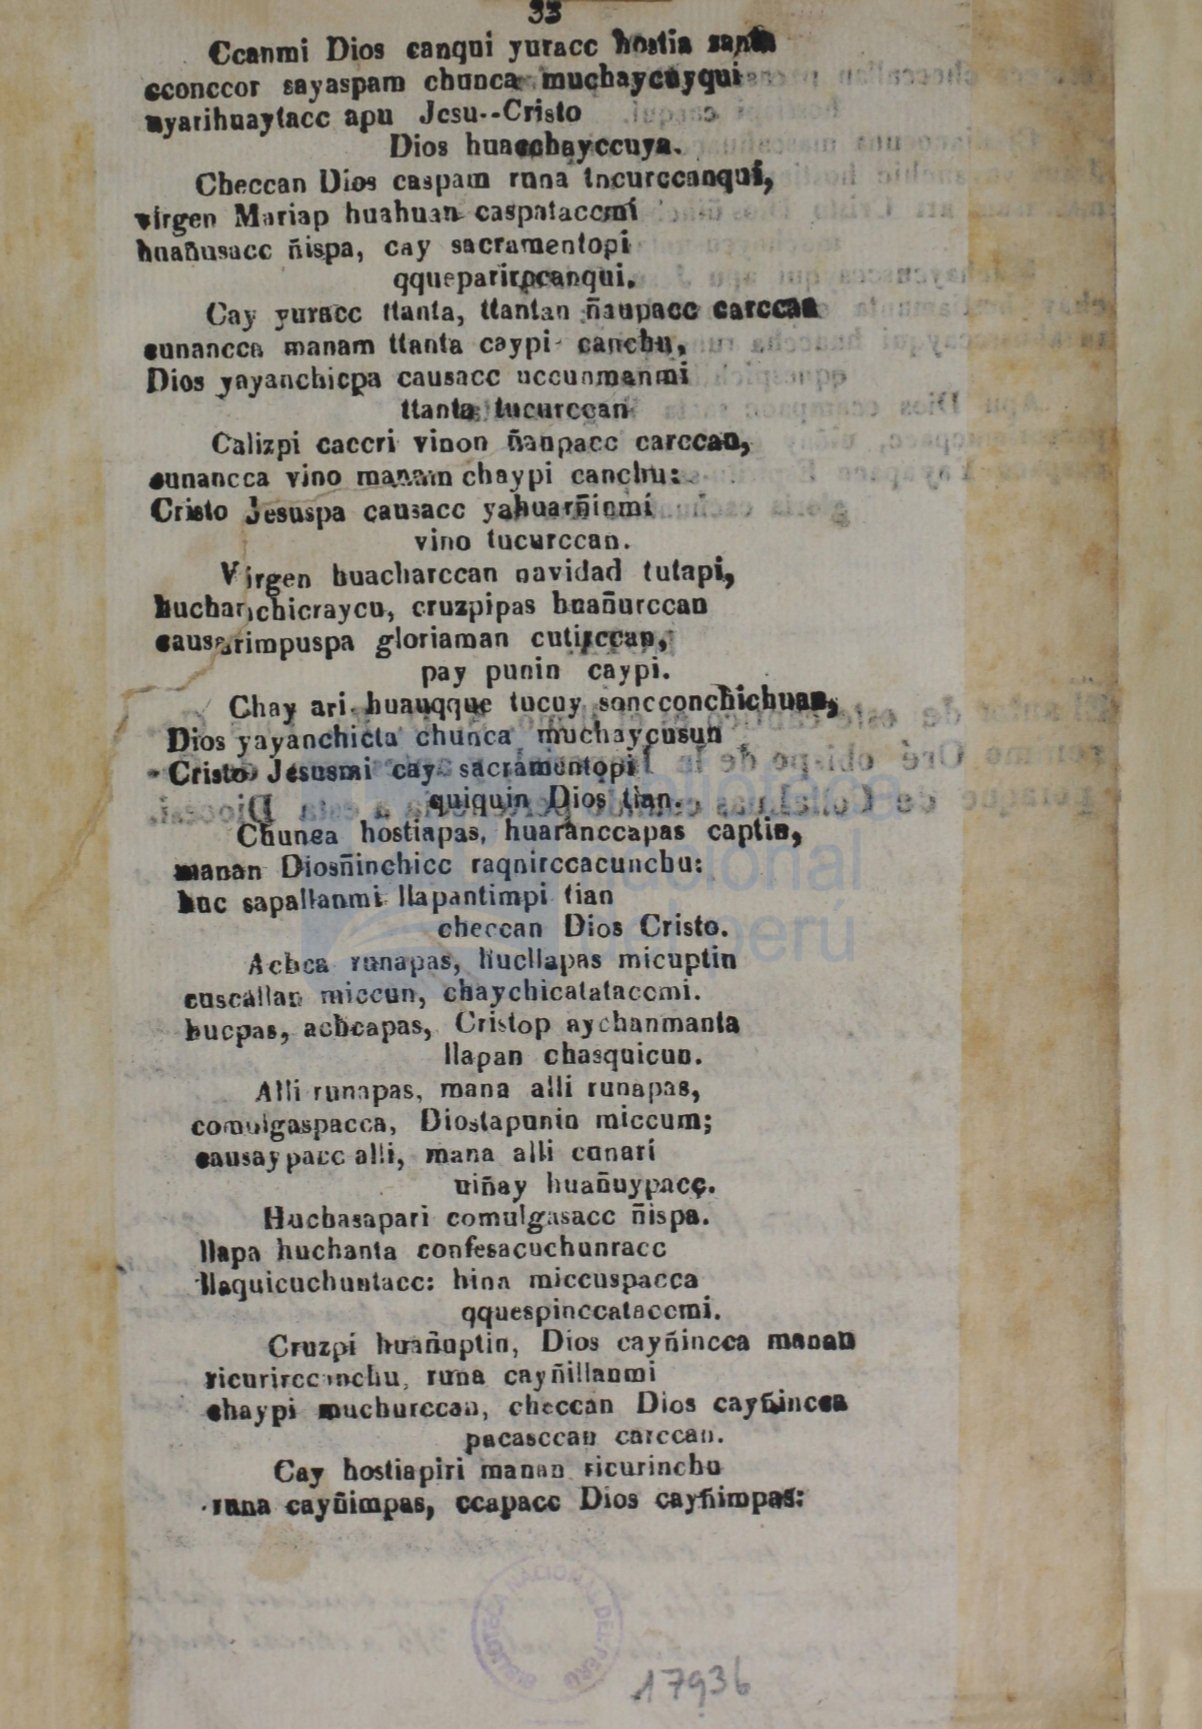 33
Ccanmi Dios canqui yuracc hostia santa
cconccor sayaspam chunca muchaycuyqui
ayarihuaytacc apu Jesu--Cristo
Dios huacchayccuya.
Checcan Dios caspam runa tucurccanqui,
virgen Mariap huahuan caspataccmi
huañusacc ñispa, cay sacramentopi
qqueparircanqui.
Cay yuracc ttanta, ttantan ñaupacc carccan
cunancca manam ttanta caypi canchu,
Dios yayanchicpa causacc uccunmanmi
ttanta tucurccan
Calizpi caccri vinon ñaupacc carccan,
cunancca vino manam chaypi canchu:
Cristo Jesuspa causacc yahuarñinmi
vino tucurccan.
Virgen huacharccan navidad tutapi,
huchanchicraycu, cruzpipas huañurccan
causarimpuspa gloriaman cutirccan,
pay punin caypi.
Chay ari huauqque tucuy soncconchichuan,
Dios yayanchicta chunca muchaycusun
Cristo Jesusmi cay sacramentopi
quiquin Dios tian.
Chunca hostiapas, huaranccapas captin,
manan Diosñinchicc raqnirccacunchu:
huc sapallanmi llapantimpi tian
checcan Dios Cristo.
Achca runapas, hucllapas micuptin
cuscallan miccun, chaychicatataccmi.
hucpas, achcapas, Cristop aychanmanta
llapan chasquicun.
Alli runapas, mana alli runapas,
comulgaspacca, Diostapunin miccum;
causaypacc alli, mana alli cunari
uiñay huañuypacc.
Huchasapari comulgasacc ñispa.
llapa huchanta confesacuchunracc
llaquicuchuntacc: hina miccuspacca
qquespinccataccmi.
Cruzpi huañuptin, Dios cayñincca manan
ricurirccanchu, runa cayñillanmi
chaypi muchurccan, checcan Dios cayñincca
pacasccan carccan.
Cay hostiapiri manan ricurinchu
runa cayñimpas, ccapacc Dios cayñimpas:
BIBLIOTECA NACIONAL DEL PERU
17936